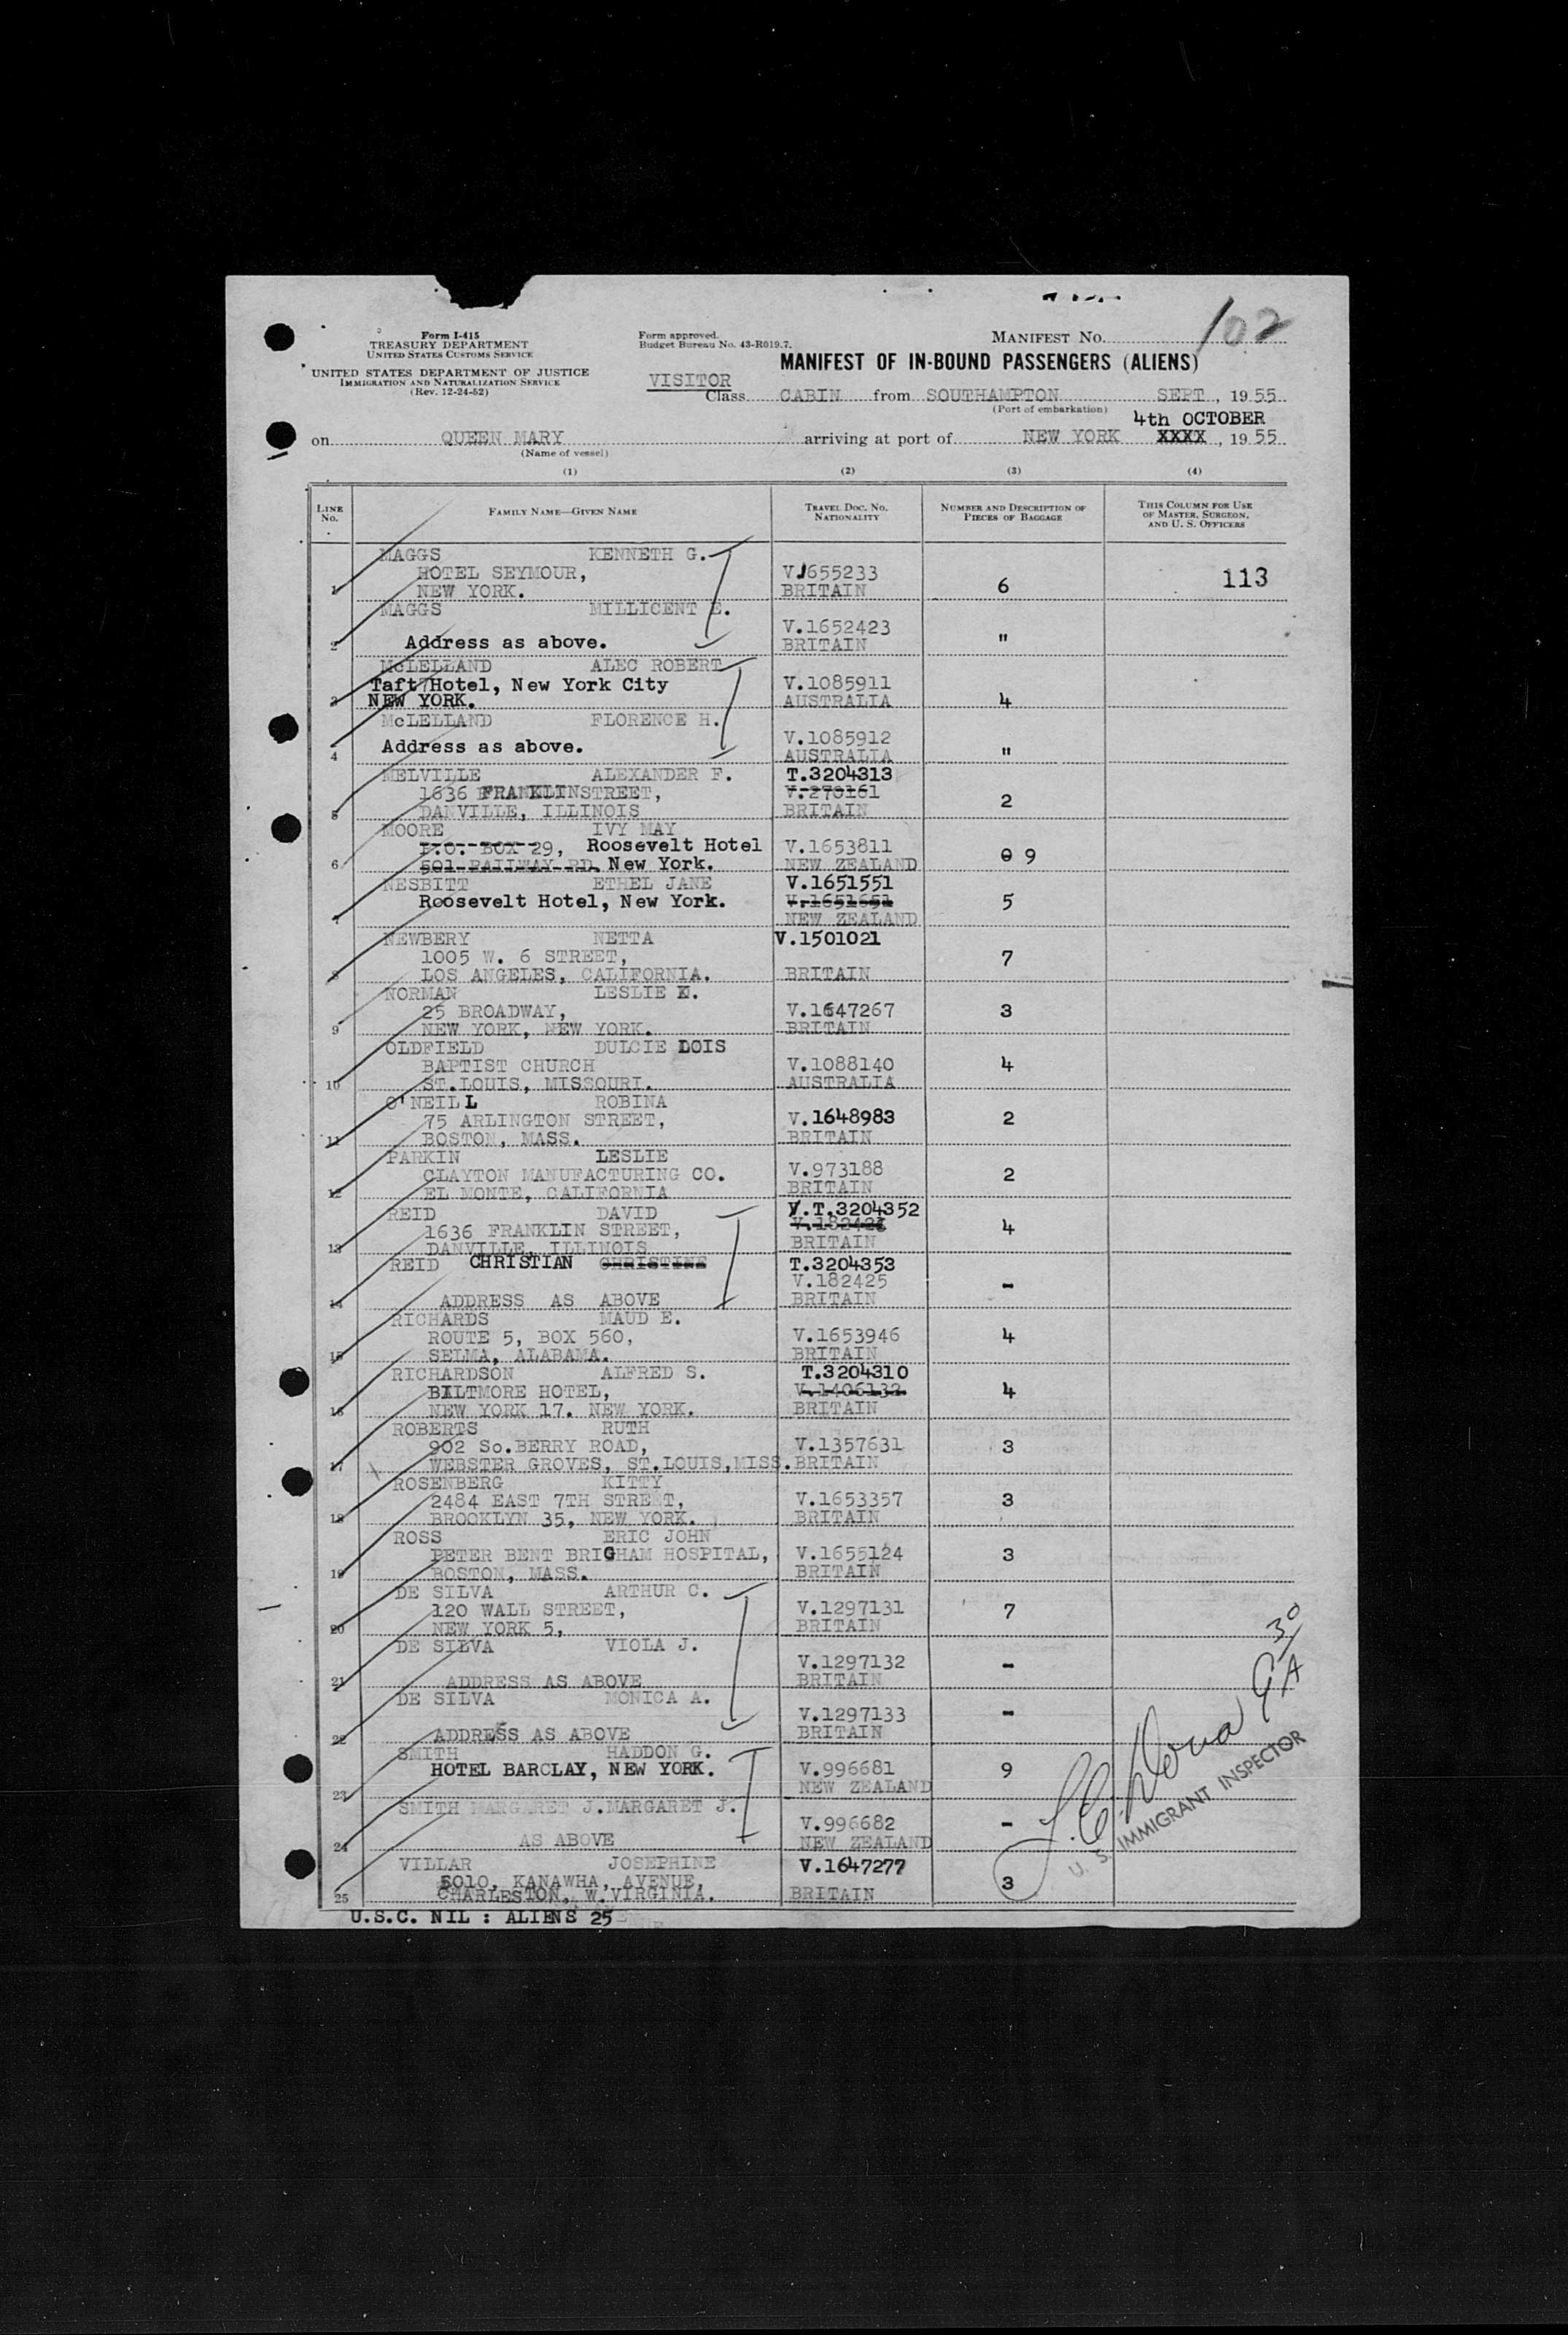 102
Form I-415
TREASURY DEPARTMENT
UNITED STATES CUSTOMS SERVICE
UNITED STATES DEPARTMENT OF JUSTICE
IMMIGRATION AND NATURALIZATION SERVICE
(Rev. 12-24-52)
Form approved.
Budget Bureau No. 43-R019.7.
MANIFEST No.
MANIFEST OF IN-BOUND PASSENGERS (ALIENS)
VISITOR
Class CABIN from SOUTHAMPTON SEPT, 1955
(Port of embarkation)
4th OCTOBER
on QUEEN MARY arriving at port of NEW YORK XXXX, 1955
(Name of vessel)
(1) (2) (3) (4)
LINE No. FAMILY NAME—GIVEN NAME TRAVEL DOC. NO. NATIONALITY NUMBER AND DESCRIPTION OF PIECES OF BAGGAGE THIS COLUMN FOR USE OF MASTER, SURGEON, AND U. S. OFFICERS
MAGGS KENNETH G.
HOTEL SEYMOUR, V.1655233 113
1 NEW YORK. BRITAIN 6
MAGGS MILLICENT E.
V.1652423
2 Address as above. BRITAIN "
McLELLAND ALEC ROBERT
Taft Hotel, New York City V.1085911
3 NEW YORK. AUSTRALIA 4
McLELLAND FLORENCE H.
Address as above. V.1085912
4 AUSTRALIA "
MELVILLE ALEXANDER F. T.3204313
1636 FRANKLIN STREET, V.270161 2
5 DANVILLE, ILLINOIS BRITAIN
MOORE IVY MAY
P.O. BOX 29, Roosevelt Hotel V.1653811
6 501 RAILWAY RD. New York. NEW ZEALAND 0 9
NESBITT ETHEL JANE V.1651551
Roosevelt Hotel, New York. V.1651651 5
7 NEW ZEALAND
NEWBERY NETTA V.1501021
1005 W. 6 STREET, 7
8 LOS ANGELES, CALIFORNIA. BRITAIN
NORMAN LESLIE
25 BROADWAY, V.1647267 3
9 NEW YORK, NEW YORK. BRITAIN
OLDFIELD DULCIE LOIS
BAPTIST CHURCH V.1088140 4
10 ST.LOUIS, MISSOURI. AUSTRALIA
O'NEILL ROBINA
75 ARLINGTON STREET, V.1648983 2
11 BOSTON, MASS. BRITAIN
PARKIN LESLIE
CLAYTON MANUFACTURING CO. V.973188 2
12 EL MONTE, CALIFORNIA BRITAIN
REID DAVID V.T.3204352
1636 FRANKLIN STREET, 4
13 DANVILLE, ILLINOIS BRITAIN
REID CHRISTIAN CHRISTINE T.3204353
V.182425 -
14 ADDRESS AS ABOVE BRITAIN
RICHARDS MAUD E.
ROUTE 5, BOX 560, V.1653946 4
15 SELMA, ALABAMA. BRITAIN
RICHARDSON ALFRED S. T.3204310
BILTMORE HOTEL, V.1406132 4
16 NEW YORK 17. NEW YORK. BRITAIN
ROBERTS RUTH
902 So.BERRY ROAD, V.1357631 3
17 WEBSTER GROVES, ST.LOUIS,MISS. BRITAIN
ROSENBERG KITTY
2484 EAST 7TH STREET, V.1653357 3
18 BROOKLYN 35, NEW YORK. BRITAIN
ROSS ERIC JOHN
PETER BENT BRIGHAM HOSPITAL, V.1655124 3
19 BOSTON, MASS. BRITAIN
DE SILVA ARTHUR C.
120 WALL STREET, V.1297131 7
20 NEW YORK 5, BRITAIN
DE SILVA VIOLA J.
V.1297132 -
21 ADDRESS AS ABOVE BRITAIN
DE SILVA MONICA A.
V.1297133 -
22 ADDRESS AS ABOVE BRITAIN
SMITH HADDON G.
HOTEL BARCLAY, NEW YORK. V.996681 9
23 NEW ZEALAND
SMITH MARGARET J.MARGARET J.
V.996682 -
24 AS ABOVE NEW ZEALAND
VILLAR JOSEPHINE V.1647277
5010, KANAWHA, AVENUE, 3
25 CHARLESTON, W.VIRGINIA. BRITAIN
U. S. IMMIGRANT INSPECTOR
U.S.C. NIL : ALIENS 25